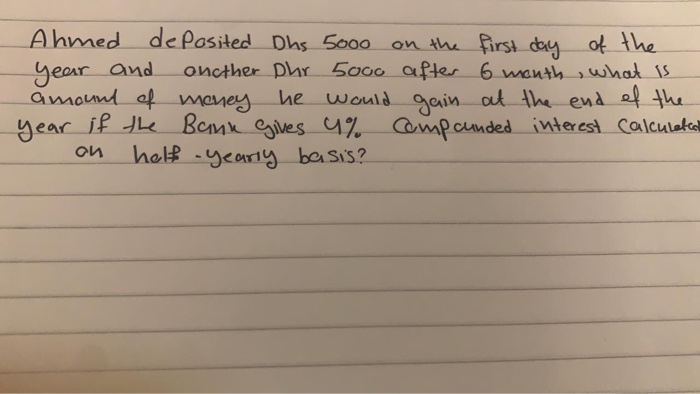 Ahmed deposited Dhs 5000 on the first day of the
year and onother Dhr 5000 after 6 month, what is
amount of money he would gain at the end of the
year if the Bank gives 4% Compounded interest Calculated
on half-yearly basis?